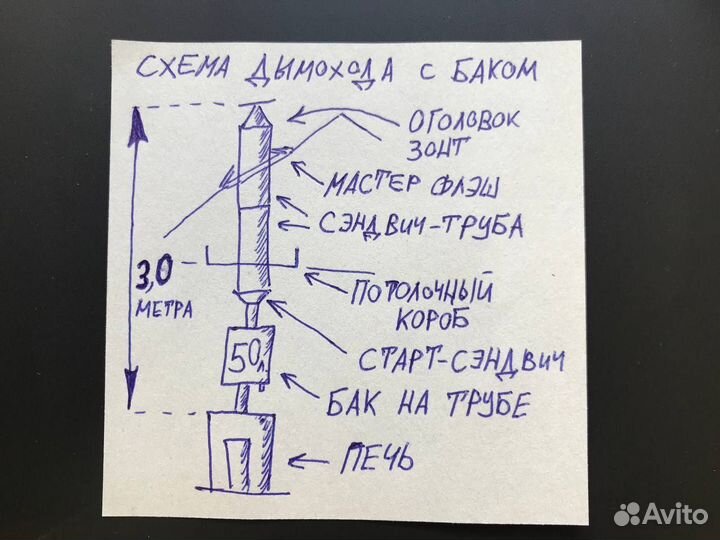 СХЕМА ДЫМОХОДА С БАКОМ
ОГОЛОВОК
ЗОНТ
МАСТЕР ФЛЭШ
СЭНДВИЧ-ТРУБА
3,0
МЕТРА
ПОТОЛОЧНЫЙ
КОРОБ
СТАРТ-СЭНДВИЧ
50л
БАК НА ТРУБЕ
ПЕЧЬ
Avito